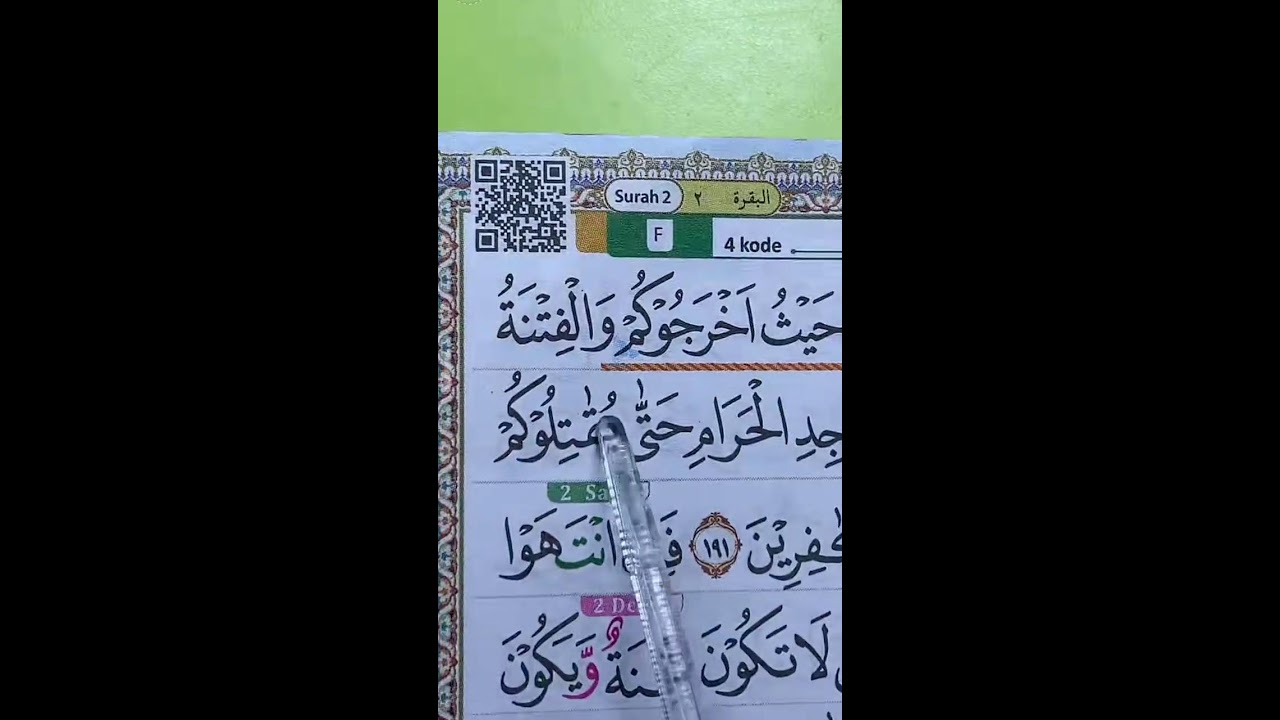 Surah 2 ٢ البقرة
F
4 kode
حَيْثُ اَخْرَجُوْكُمْ وَالْفِتْنَةُ
جِدِ الْحَرَامِ حَتّٰى يُقٰتِلُوْكُمْ
كٰفِرِيْنَ ١٩١ انْتَهَوْا
لَا تَكُوْنَ وَّيَكُوْنَ